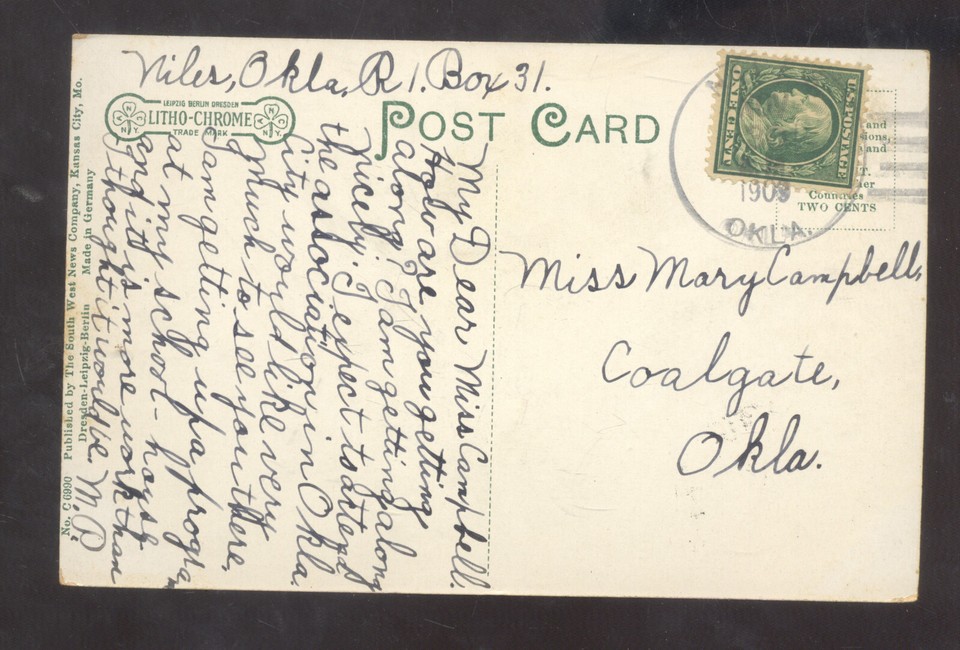 Niles, Okla, R 1. Box 31.
LEIPZIG BERLIN DRESDEN
LITHO-CHROME
TRADE MARK
N Y
N Y
POST CARD
U.S. POSTAGE
ONE CENT
1909
OKLA.
and
and
Countries
TWO CENTS
My Dear Miss Campbell.
How are you getting
along? I am getting along
nicely. I expect to attend
the association in Okla.
City would like very
much to see you there,
I am getting up a program
at my school-house
and it is more work than
I thought it would be. M.P.
Miss Mary Campbell,
Coalgate,
Okla.
No. C 6990 Published by The South West News Company, Kansas City, Mo.
Dresden-Leipzig-Berlin Made in Germany